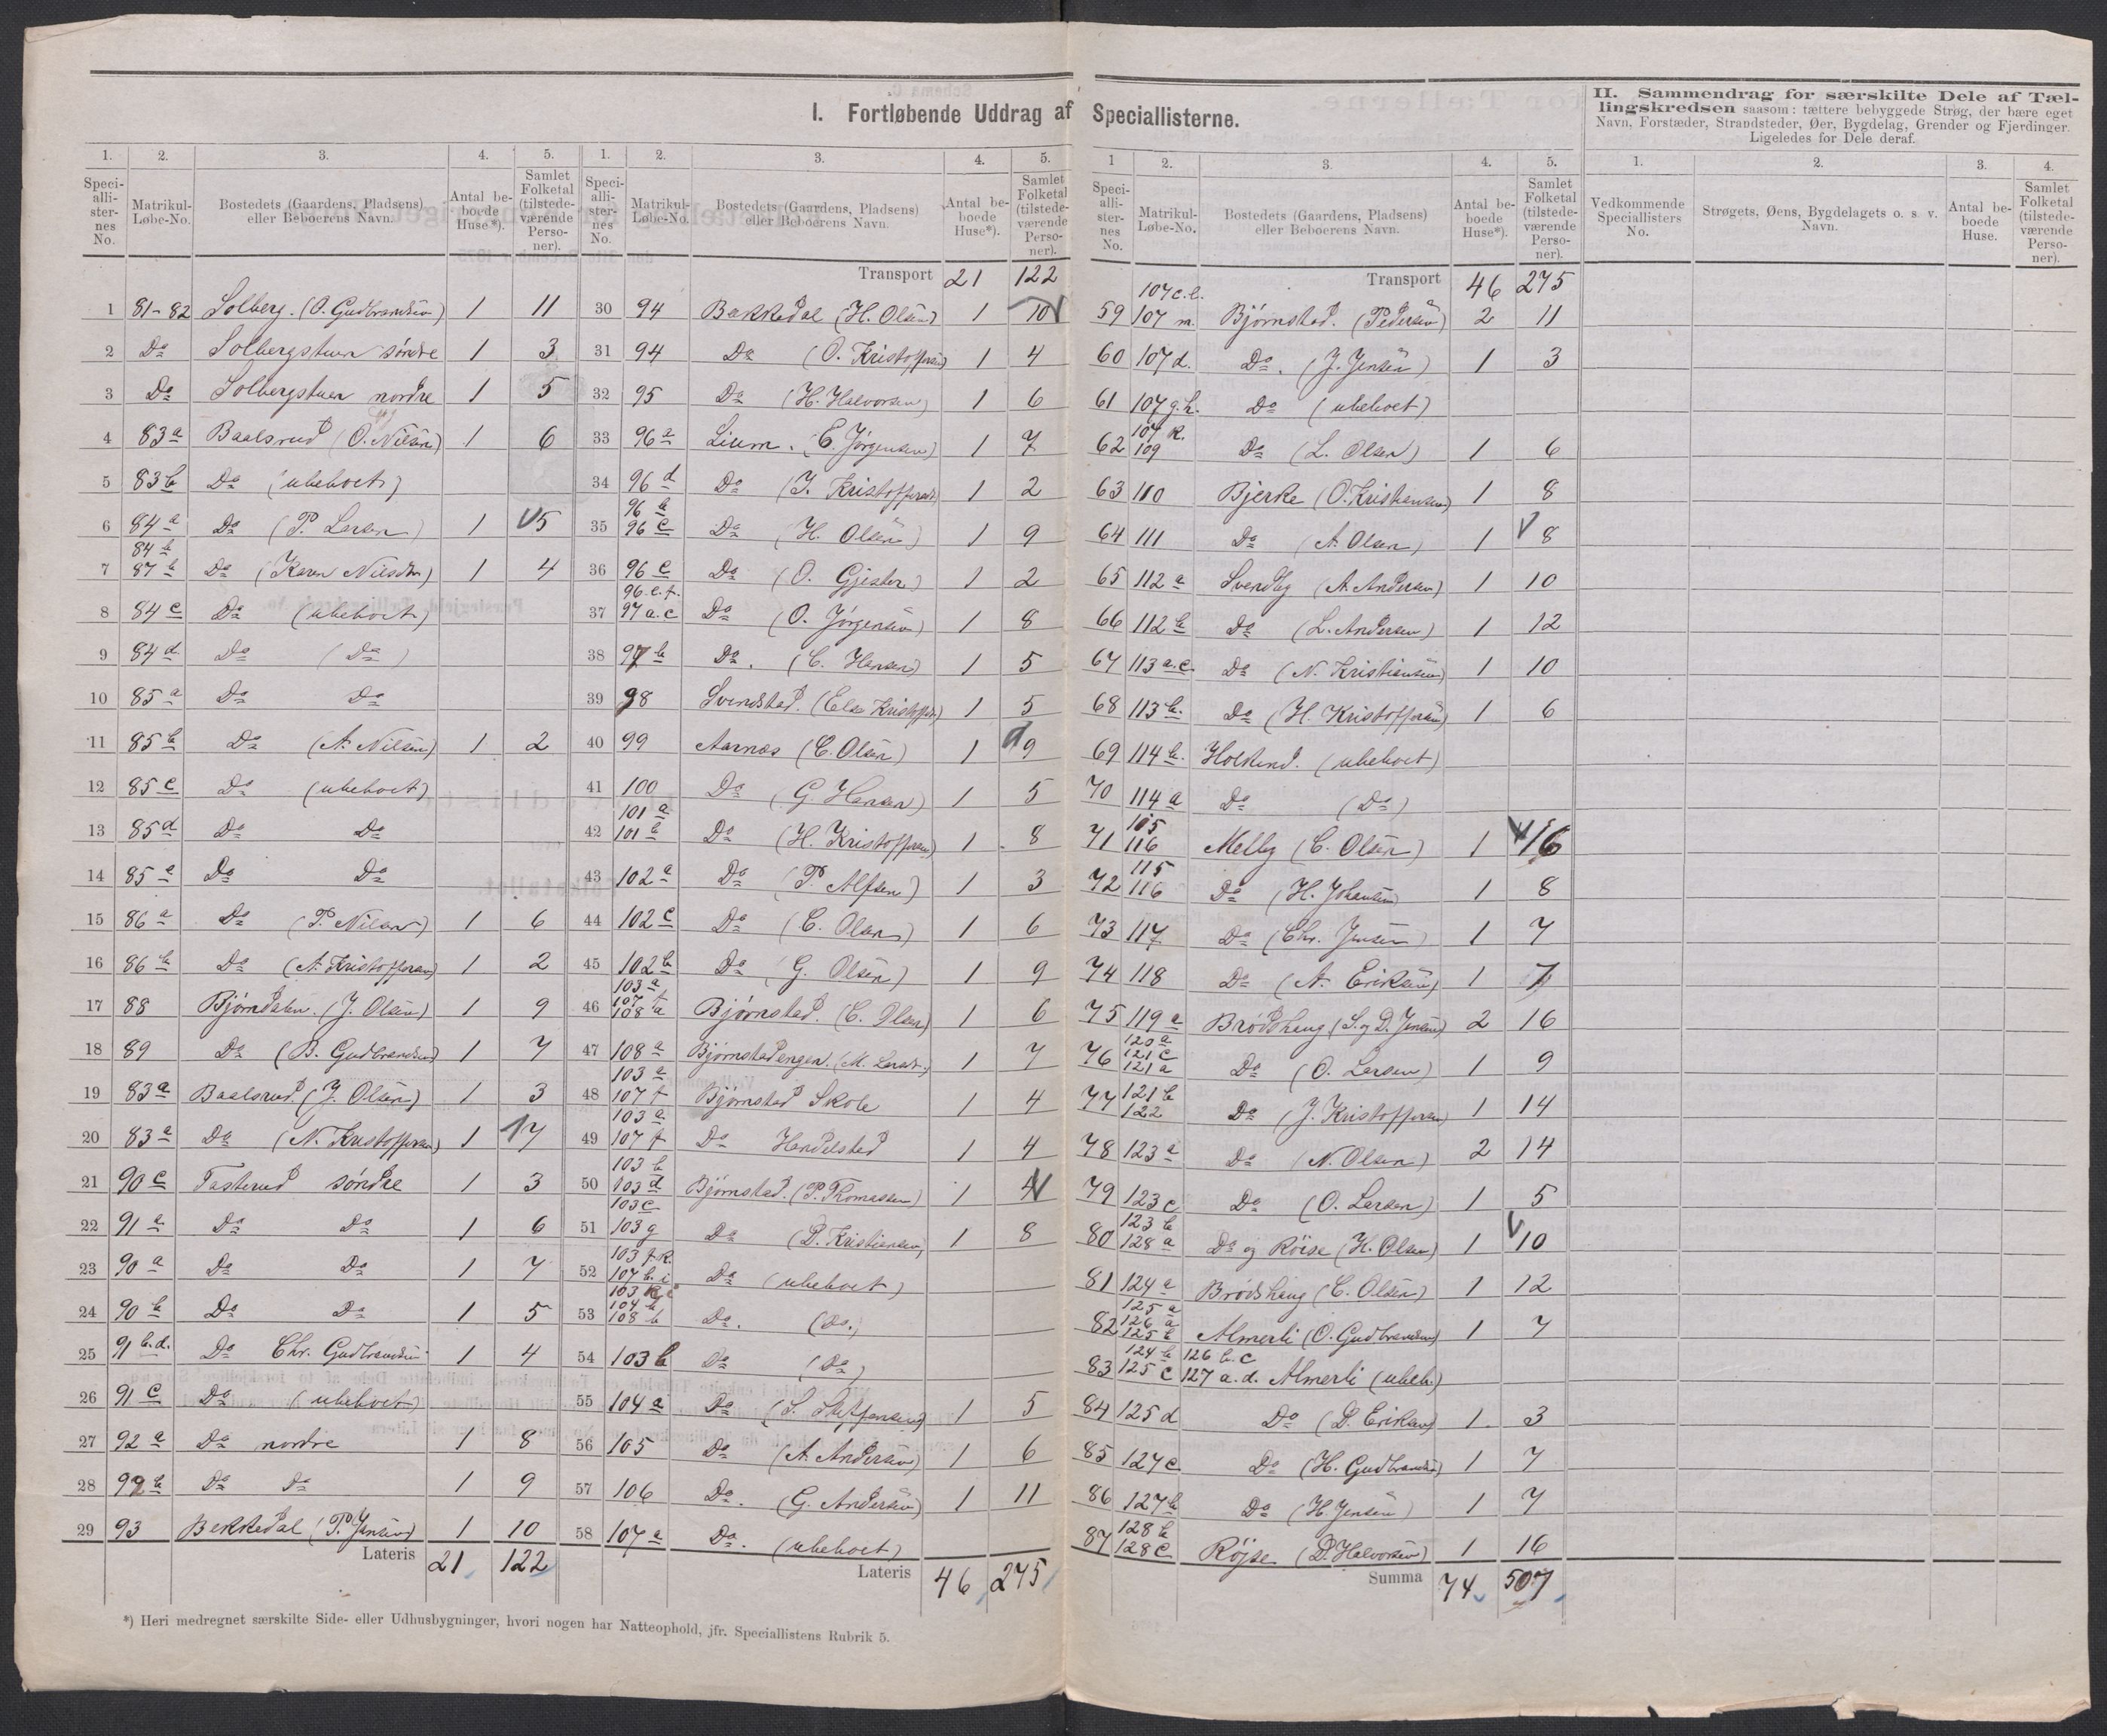 I. Fortløbende Uddrag af Speciallisterne.
1. 2. 3. 4. 5.
Speciallisternes No. Matrikul-Løbe-No. Bostedets (Gaardens, Pladsens) eller Beboerens Navn. Antal beboede Huse*). Samlet Folketal (tilstedeværende Personer).
1 81-82 Solberg. (O. Gudbrandsen) 1 11
2 Do Solbergstuen søndre 1 3
3 Do Solbergstuen nordre 1 5
4 83a Baalsrud (O. Nilsen) 1 6
5 83b Do (ubeboet)
6 84a Do (P. Larsen) 1 5
7 84b 87b Do (Karen Nilsdtr) 1 4
8 84c Do (ubeboet)
9 84d Do (Do)
10 85a Do Do
11 85b Do (A. Nilsen) 1 2
12 85c Do (ubeboet)
13 85d Do Do
14 85e Do Do
15 86a Do (P. Nilsen) 1 6
16 86b Do (A. Kristoffersen) 1 2
17 88 Bjørndalen. (J. Olsen) 1 9
18 89 Do (B. Gudbrandsen) 1 7
19 83a Baalsrud (J. Olsen) 1 3
20 83a Do (N. Kristoffersen) 1 7
21 90c Tasterud søndre 1 3
22 91a Do Do 1 6
23 90a Do Do 1 7
24 90b Do Do 1 5
25 91b.d. Do Chr. Gudbrandsen 1 4
26 91c Do (ubeboet)
27 92a Do nordre 1 8
28 92b Do Do 1 9
29 93 Bekkedal (P. Jensen) 1 10
Lateris 21 122
1. 2. 3. 4. 5.
Speciallisternes No. Matrikul-Løbe-No. Bostedets (Gaardens, Pladsens) eller Beboerens Navn. Antal beboede Huse*). Samlet Folketal (tilstedeværende Personer).
Transport 21 122
30 94 Bakkedal (H. Olsen) 1 10
31 94 Do (O. Kristoffersen) 1 4
32 95 Do (H. Halvorsen) 1 6
33 96a Lium. (E. Jørgensen) 1 7
34 96d Do (J. Kristoffersen) 1 2
35 96b 96c Do (H. Olsen) 1 9
36 96c Do (O. Gjester) 1 2
37 96.e.f. 97a.c Do (O. Jørgensen) 1 8
38 97b Do. (C. Hansen) 1 5
39 98 Svendstad. (Else Kristoffersd) 1 5
40 99 Aarnes (C. Olsen) 1 9
41 100 Do (G. Hansen) 1 5
42 101a 101b Do (H. Kristoffersen) 1 8
43 102a Do (P. Alfsen) 1 3
44 102c Do (C. Olsen) 1 6
45 102b Do (G. Olsen) 1 9
46 103a 107f 108a Bjørnstad. (C. Olsen) 1 6
47 108a Bjørnstadengen. (M. Larsd.) 1 7
48 103a 107f Bjørnstad Skole 1 4
49 103a 107f Do Handelsted 1 4
50 103b 103d Bjørnstad. (P. Thomassen) 1 4
51 103c 103g Do (P. Kristiansen) 1 8
52 103f.k. 107b.i Do (ubeboet)
53 104b 108b Do. (Do.)
54 103b Do (Do)
55 104a Do (S. Steffensen) 1 5
56 105 Do (A. Andersen) 1 6
57 106 Do. (G. Andersen) 1 11
58 107a Do. (ubeboet)
Lateris 46 275
*) Heri medregnet særskilte Side- eller Udhusbygninger, hvori nogen har Natteophold, jfr. Speciallistens Rubrik 5.
1 2. 3. 4. 5.
Speciallisternes No. Matrikul-Løbe-No. Bostedets (Gaardens, Pladsens) eller Beboerens Navn. Antal beboede Huse*). Samlet Folketal (tilstedeværende Personer).
Transport 46 275
59 107c.l. 107m. Bjørnstad. (Pedersen) 2 11
60 107d. Do. (J. Jensen) 1 3
61 107g.h. Do (ubeboet)
62 107k. 109 Do (L. Olsen) 1 6
63 110 Bjerke (O. Kristiansen) 1 8
64 111 Do (A. Olsen) 1 8
65 112a Svendby (A. Andersen) 1 10
66 112b Do (L. Andersen) 1 12
67 113a.c. Do (N. Kristiansen) 1 10
68 113b. Do (H. Kristoffersen) 1 6
69 114b. Holtend. (ubeboet)
70 114a Do (Do)
71 105 116 Melby (C. Olsen) 1 16
72 115 116 Do (H. Johansen) 1 8
73 117. Do (Chr. Jensen) 1 7
74 118 Do (A. Eriksen) 1 7
75 119a Brødshaug (S. og D. Jensen) 2 16
76 120a 121c 121a Do (O. Larsen) 1 9
77 121b 122 Do (J. Kristoffersen) 1 14
78 123a Do (N. Olsen) 2 14
79 123c Do (O. Larsen) 1 5
80 123b 128a Do og Röise (K. Olsen) 1 10
81 124a Brødshaug (C. Olsen) 1 12
82 125a 126a 125b Almerli (O. Gudbrandsen) 1 7
83 124b 126b.c 125c 127a.d. Almerli (ubeb.)
84 125d Do (D. Eriksen) 1 3
85 127c Do (H. Gudbrandsen) 1 7
86 127b Do (H. Jensen) 1 7
87 128b 128c Röjse (D. Halvorsen) 1 16
Summa 74 507
II. Sammendrag for særskilte Dele af Tællingskredsen saasom: tættere bebyggede Strøg, der bære eget Navn, Forstæder, Strandsteder, Øer, Bygdelag, Grender og Fjerdinger. Ligeledes for Dele deraf.
1. 2. 3. 4.
Vedkommende Speciallisters No. Strøgets, Øens, Bygdelagets o. s. v. Navn. Antal beboede Huse. Samlet Folketal (tilstedeværende Personer).